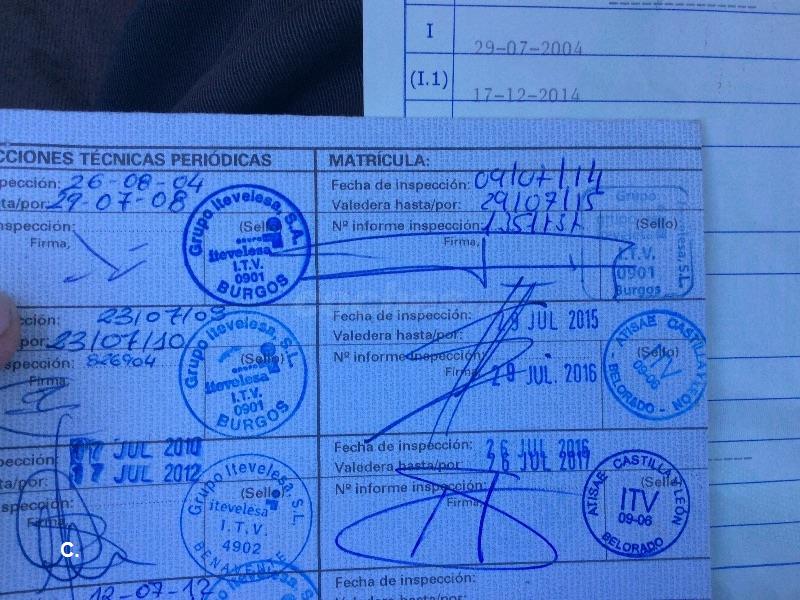 I
29-07-2004
(I.1)
17-12-2014
CCIONES TÉCNICAS PERIÓDICAS
pección: 26-08-04
ta/por 29-07-08
nspección:
(Sello)
Firma,
Grupo itevelesa, S.A.
grupo
itevelesa
I.T.V.
0901
BURGOS
cción: 23/07/09
por 23/07/10
spección: 826904
(Sello)
Firma
Grupo itevelesa, S.L.
itevelesa
I.T.V.
0901
BURGOS
pección: JUL 2010
ta/por: 17 JUL 2012
spección:
(Sello)
Firma
Grupo itevelesa, S.L.
itevelesa
I.T.V.
4902
BENAVENTE
C.
12-07-12
Grupo itevelesa, S.L.
MATRÍCULA:
Fecha de inspección: 09/07/14
Valedera hasta/por: 29/07/15
Nº informe inspección:
(Sello)
Firma,
Grupo
itevelesa, S.L.
I.T.V.
0901
Burgos
Fecha de inspección: JUL 2015
Valedera hasta/por:
Nº informe inspección:
(Sello)
Firma
29 JUL. 2016
ATISAE CASTILLA
LEON
ITV
09-06
BELORADO
Fecha de inspección: 26 JUL 2016
Valedera hasta/por 26 JUL 2017
Nº informe inspección:
(Sello)
Firma
ATISAE CASTILLA LEÓN
ITV
09-06
BELORADO
Fecha de inspección:
Valedera hasta/por: